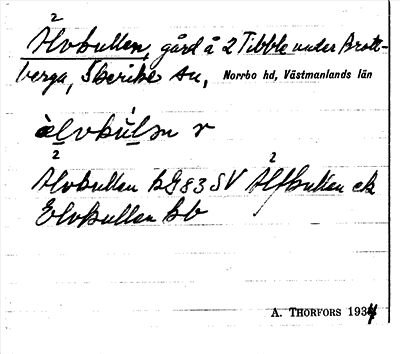 2
Alvkullen, gård å 2 Tibble under Brott-
berga, Skerike sn, Norrbo hd, Västmanlands län
ὰlvkúlṇ r
2 2
Alvkullen kG 83 SV Alfkullen ek
Elvkullen kb
A. THORFORS 1934